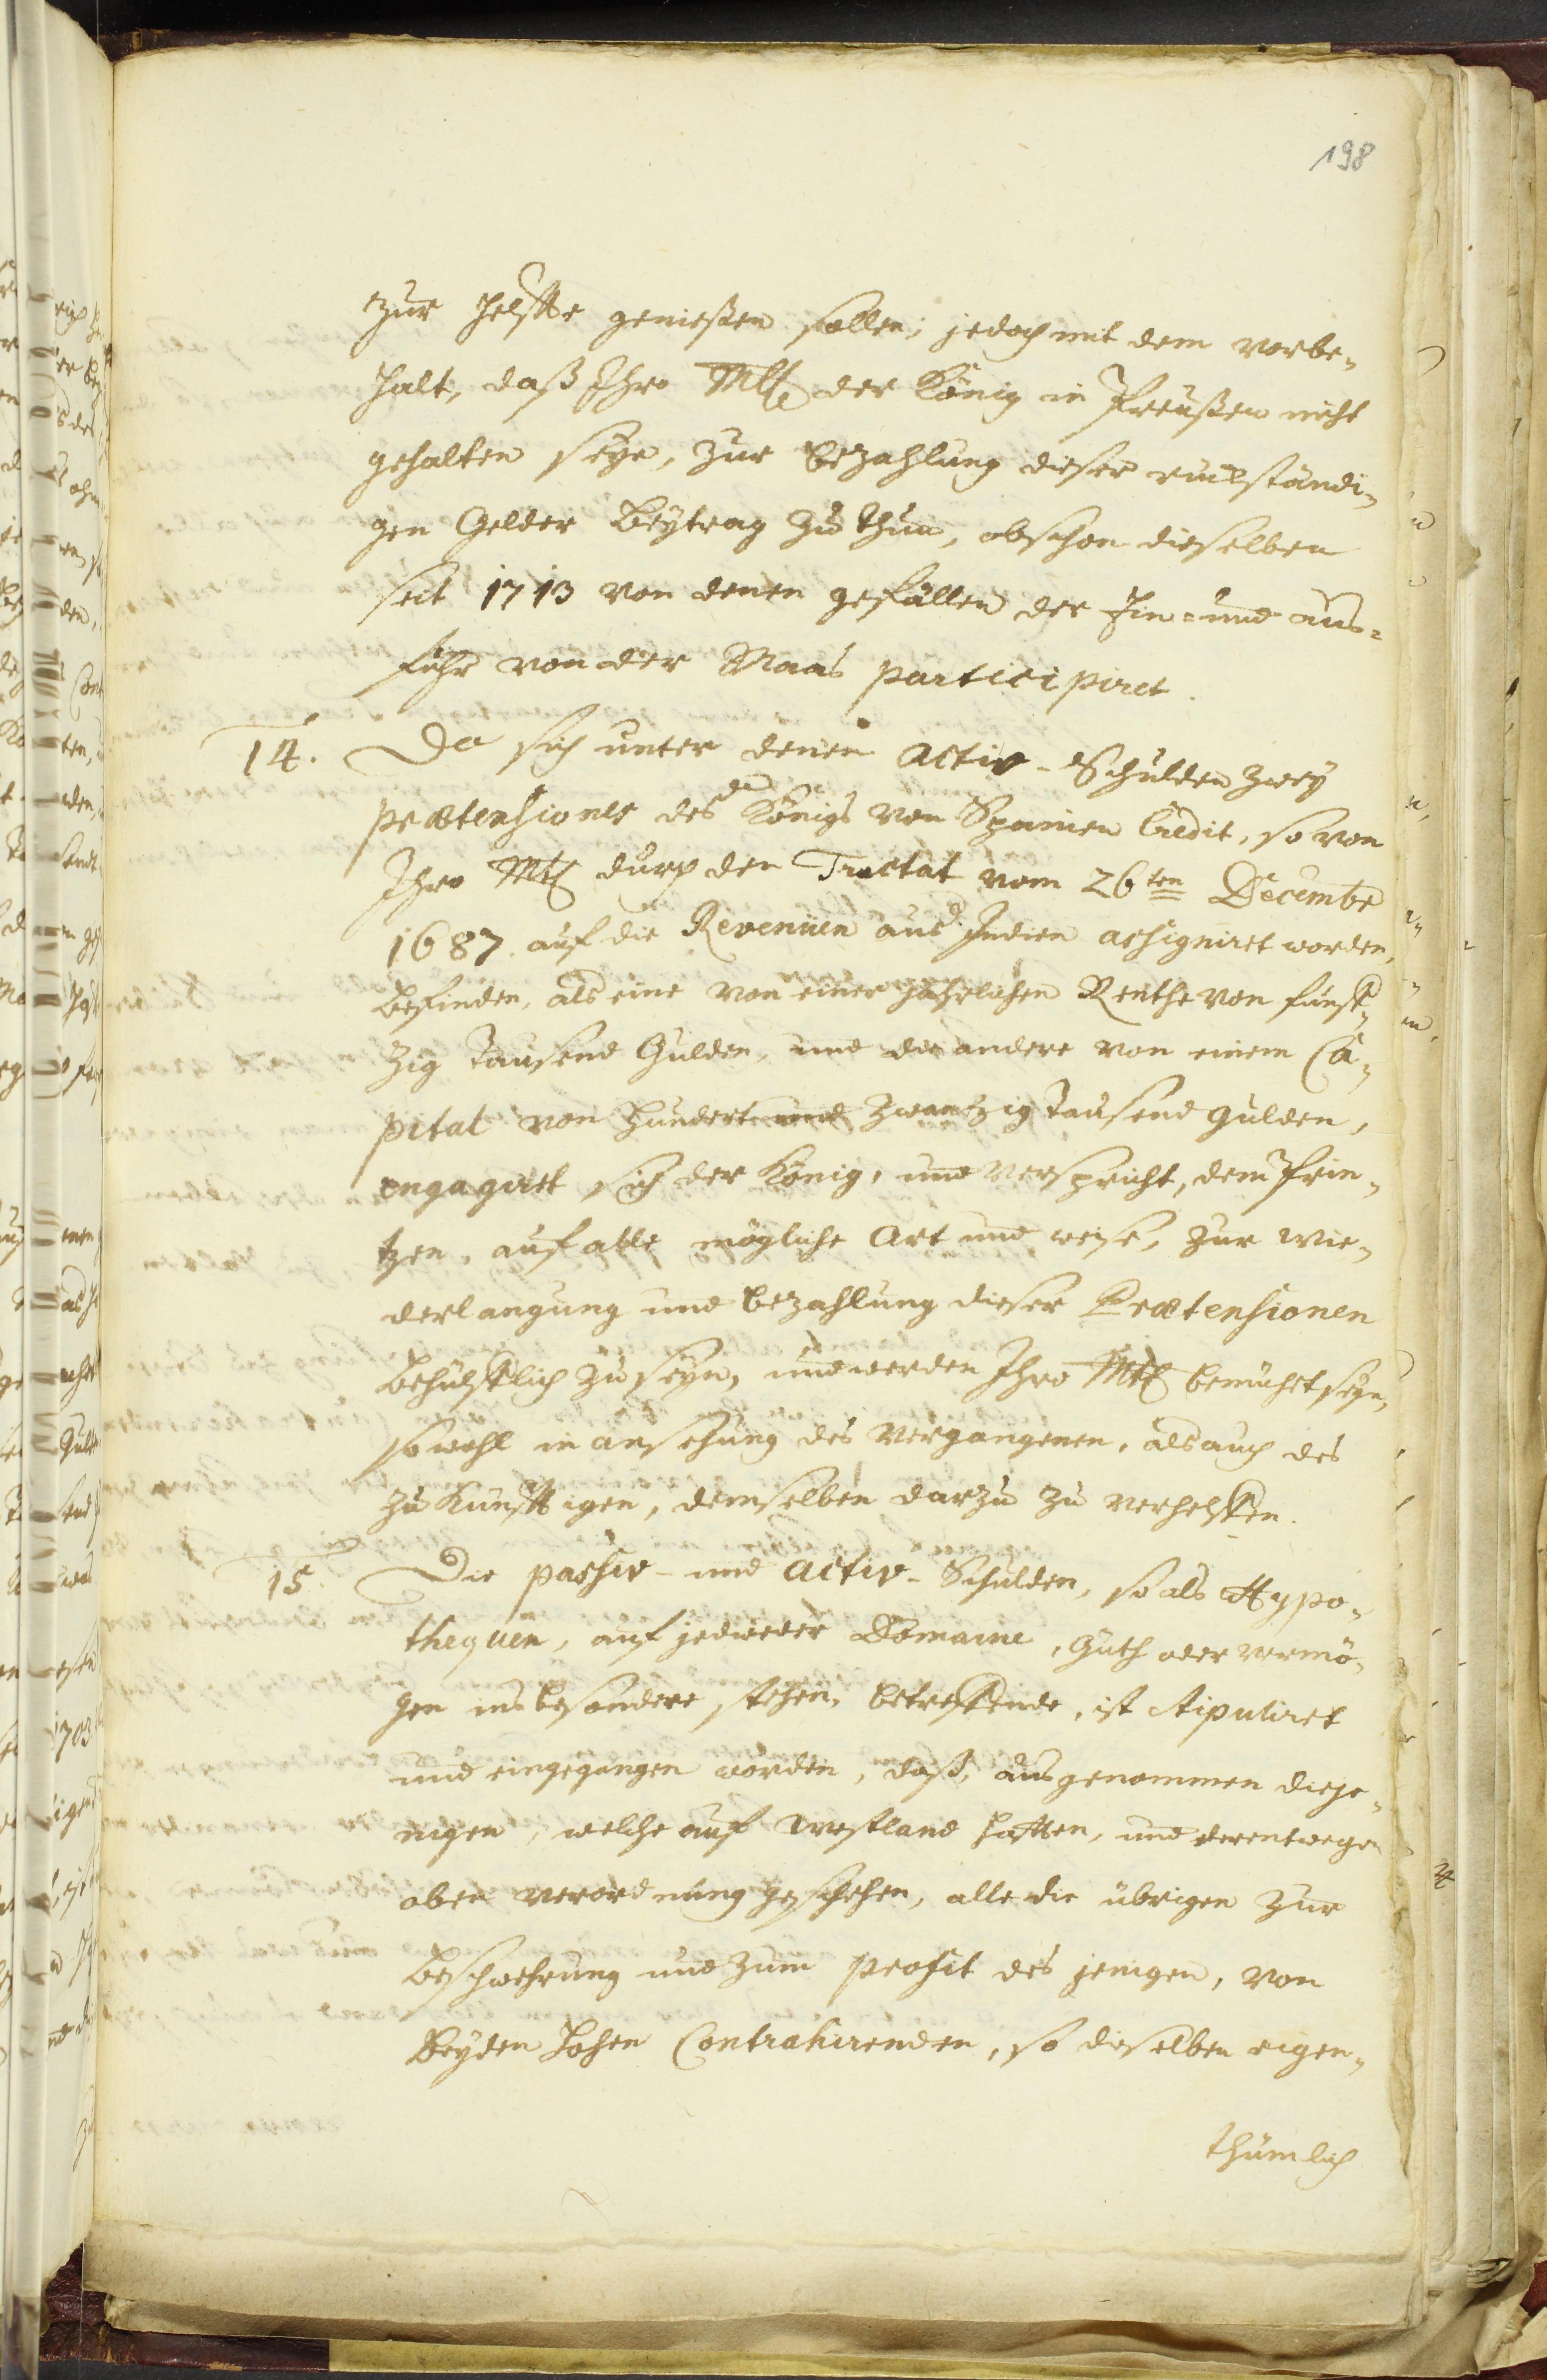 198
zur Helffte genießen sollen; jedoch mit dem vorbe-
halt, daß Ihro Mtt der König in Preußen nicht
gehalten seyn, zur bezahlung dieser rückständi-
gen Gelder Beytrag zu thun, obschon dieselben
seit 1713 von denen gefällen der Ein- und aus-
fuhr von der Maas participiret.
14. Da sich unter denen activ-Schulden zwey
prætensiones des Königs von Spanien Credit, so von
Ihro Mtt durch den Tractat vom 26ten Decembr
1687. auf die Revenüen aus Indien assigniret worden,
befinden, als eine von einer jährlichen Renthe von funff-
zig tausend Gulden, und die andere von einem Ca-
pital von hundert und zwantzig tausend gulden,
engagiret sich der König, und verspricht, dem Prin-
tzen, auf alle mögliche Art und weise, zur wie-
derlangung und bezahlung dieser Prætensionen
behülfflich zu seyn, und werden Ihro Mtt bemühet seyn,
sowohl in ansehung des vergangenen, als auch des
zukünfftigen, demselben darzu zu verhelffen.
15 Die passiv- und activ-Schulden, so als Hypo-
thequen, auf jedweder Domaine, Guth oder vermö-
gen ins besondere stehen, betreffende, ist stipuliret
und eingegangen worden, daß, ausgenommen dieje-
nigen, welche auf Westland hafften, und derentwegen
oben verordnung geschehen, alle die übrigen zur
beschwehrung und zum profit des jenigen, von
Beyden hohen Contrahirenden, so dieselben eigen-
thümlich